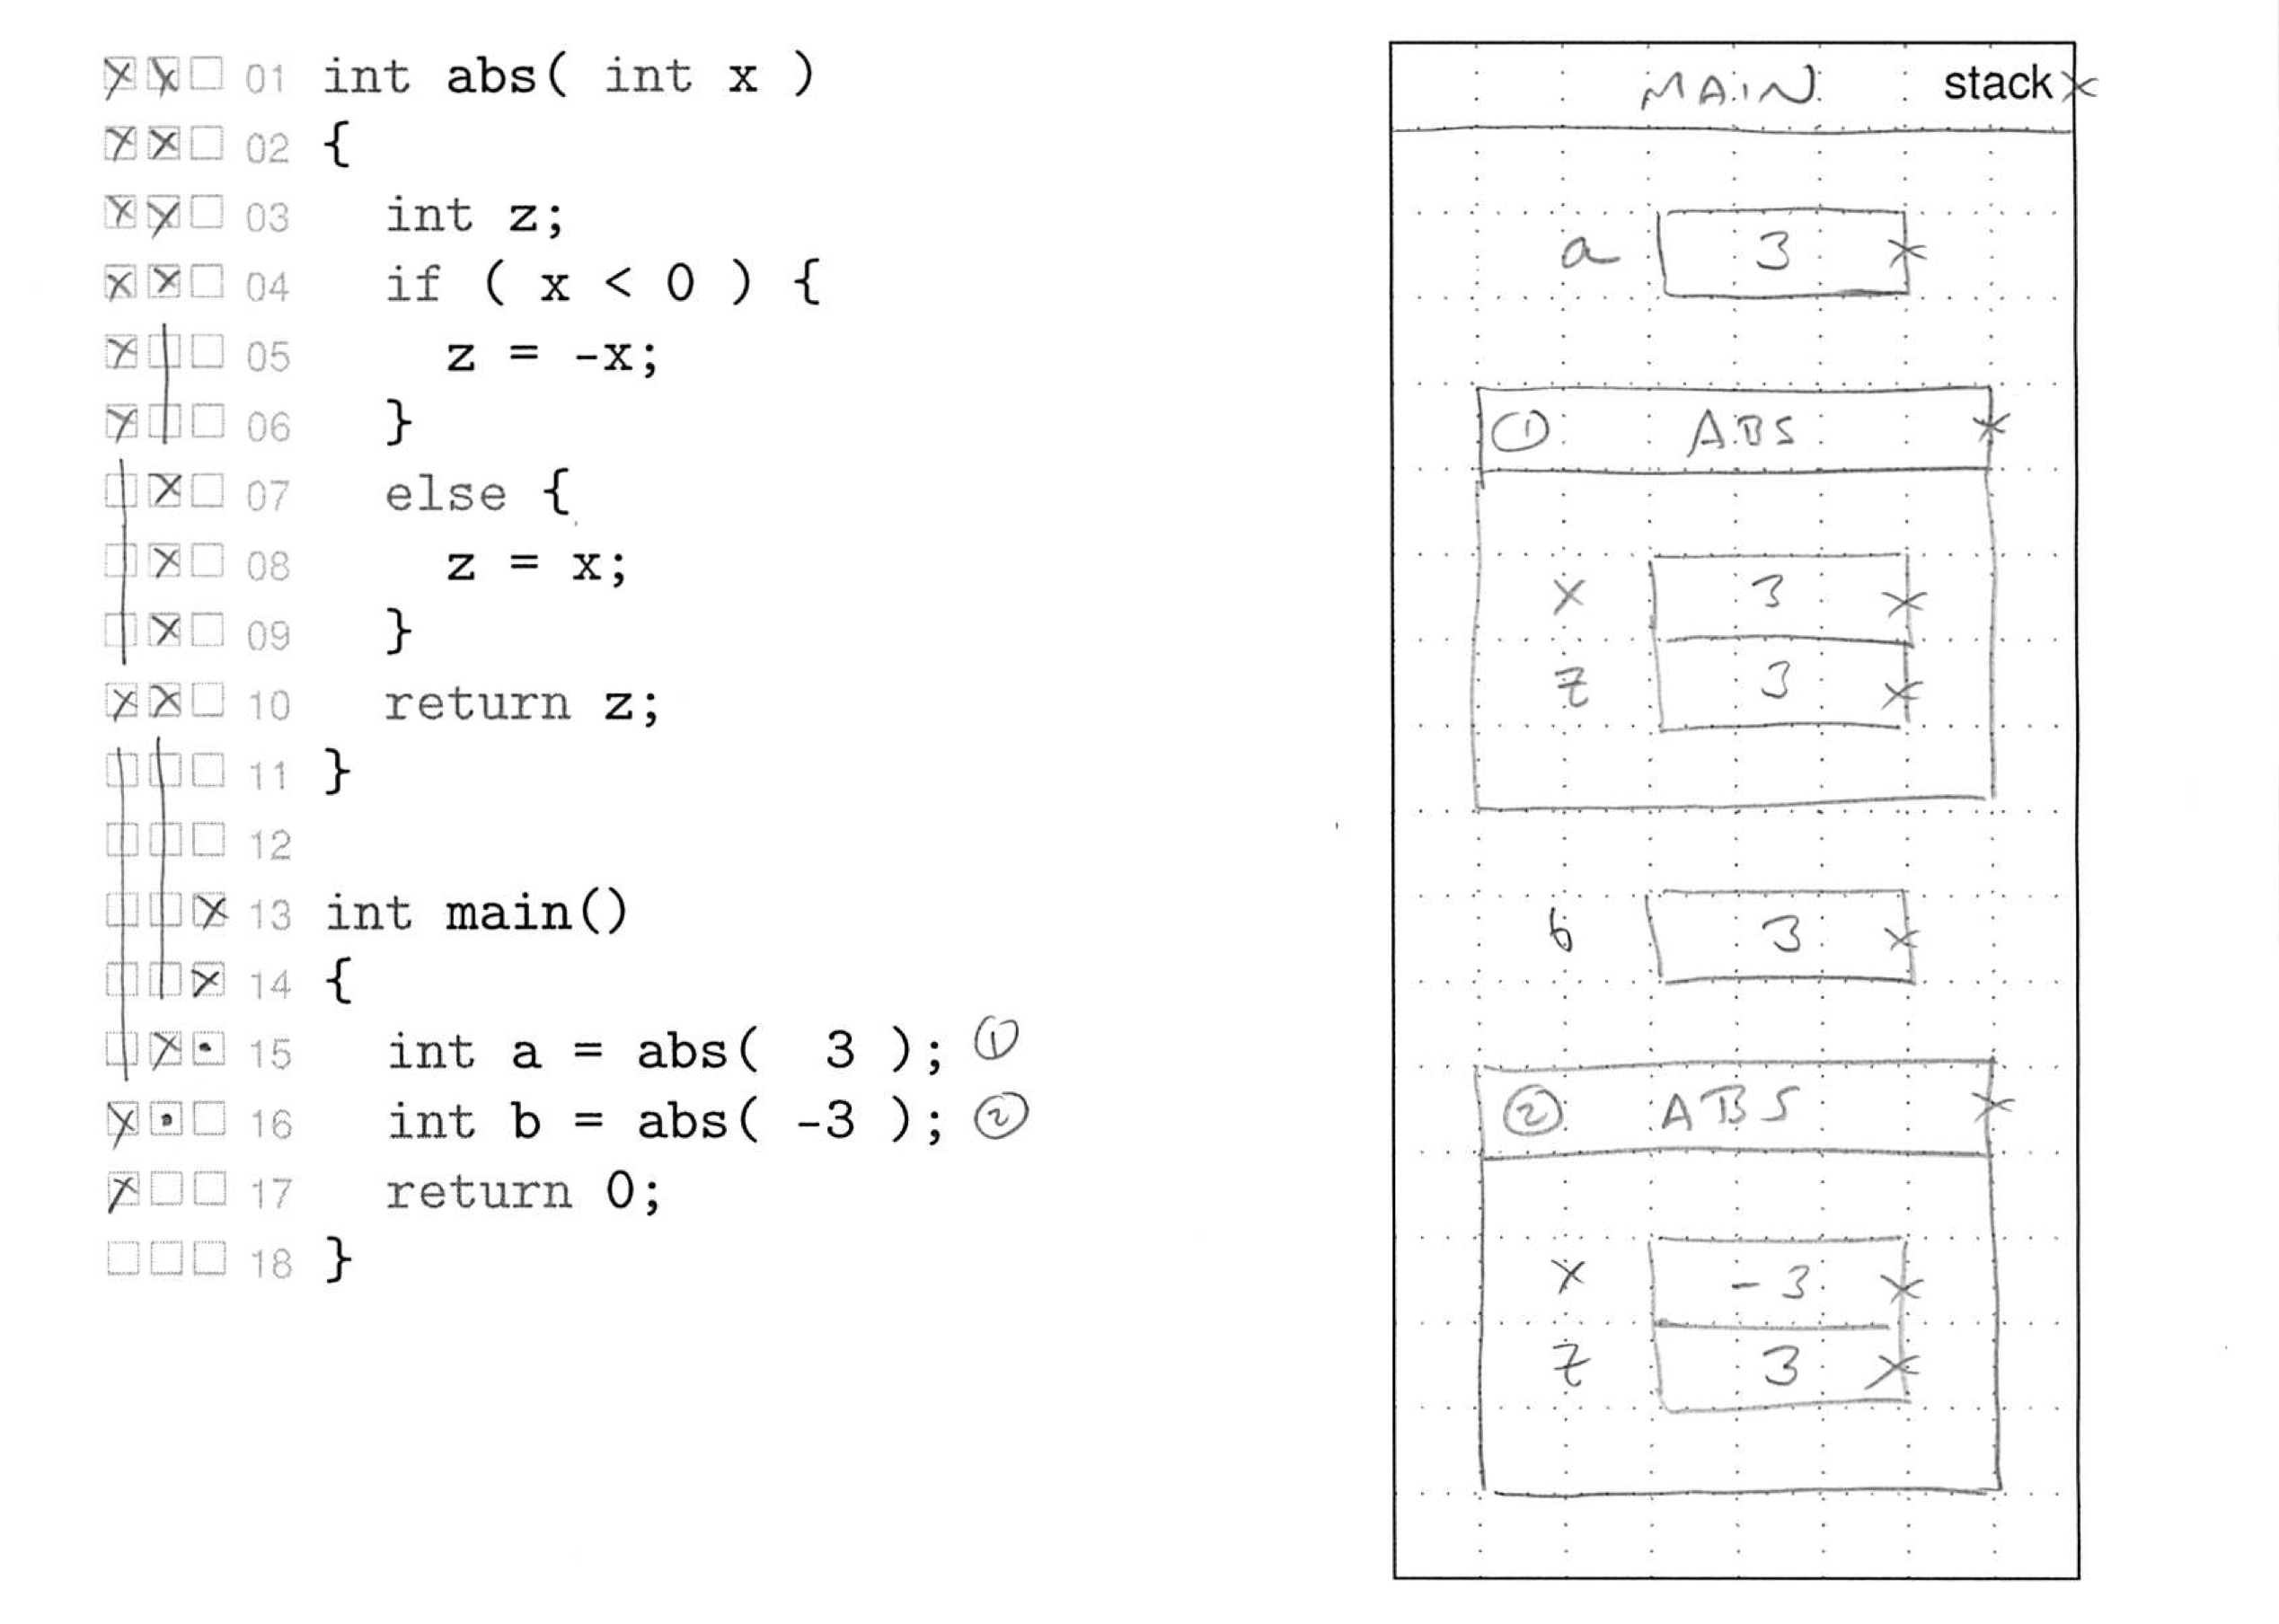 01 int abs( int x )
02 {
03 int z;
04 if ( x < 0 ) {
05 z = -x;
06 }
07 else {
08 z = x;
09 }
10 return z;
11 }
12
13 int main()
14 {
15 int a = abs( 3 ); ①
16 int b = abs( -3 ); ②
17 return 0;
18 }
MAIN stack
a 3
① ABS
x 3
z 3
b 3
② ABS
x -3
z 3